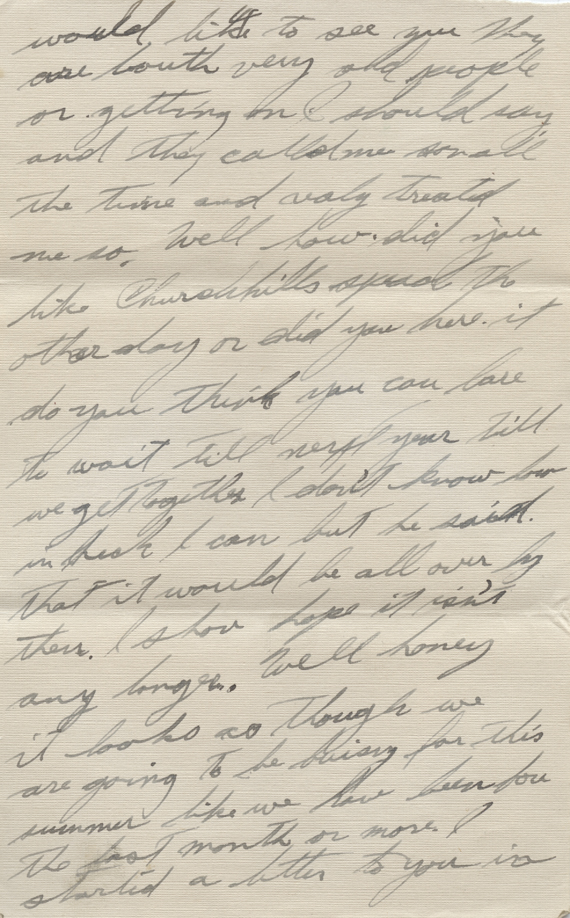 would like to see you they
are bouth very old people
or getting on I should say
and they called me son all
the time and realy treated
me so. Well how did you
like Churchhills speach the
other day or did you here it
do you think you can bare
to wait till next year till
we get together I don't know how
in heck I can but he said.
that it would be all over by
then. I shour hope it isn't
any longer. Well honey
it looks as though we
are going to be buisy for this
summer like we have been for
the last month or more. I
started a letter to you in